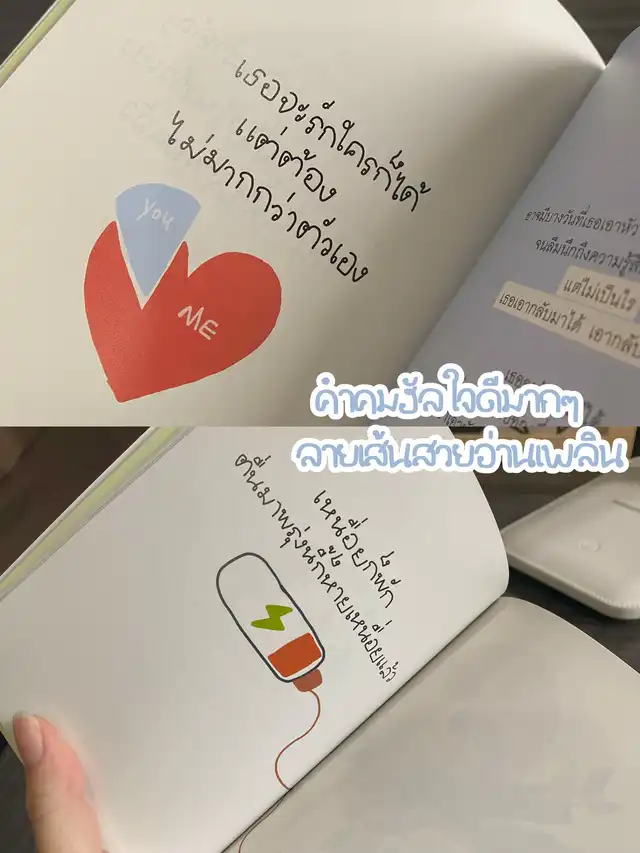 เธอจะรักใครก็ได้
แต่ต้อง
ไม่มากกว่าตัวเอง
you
ME
อาจมีบางวันที่เธอเอาหัว
จนลืมนึกถึงความรู้สึ
แต่ไม่เป็นไร
เธอเอากลับมาได้ เอากลับ
คำคมฮีลใจดีมากๆ
ลายเส้นสวยอ่านเพลิน
เหนื่อยก็พัก
ตื่นมาพรุ่งนี้ก็หายเหนื่อยแล้ว